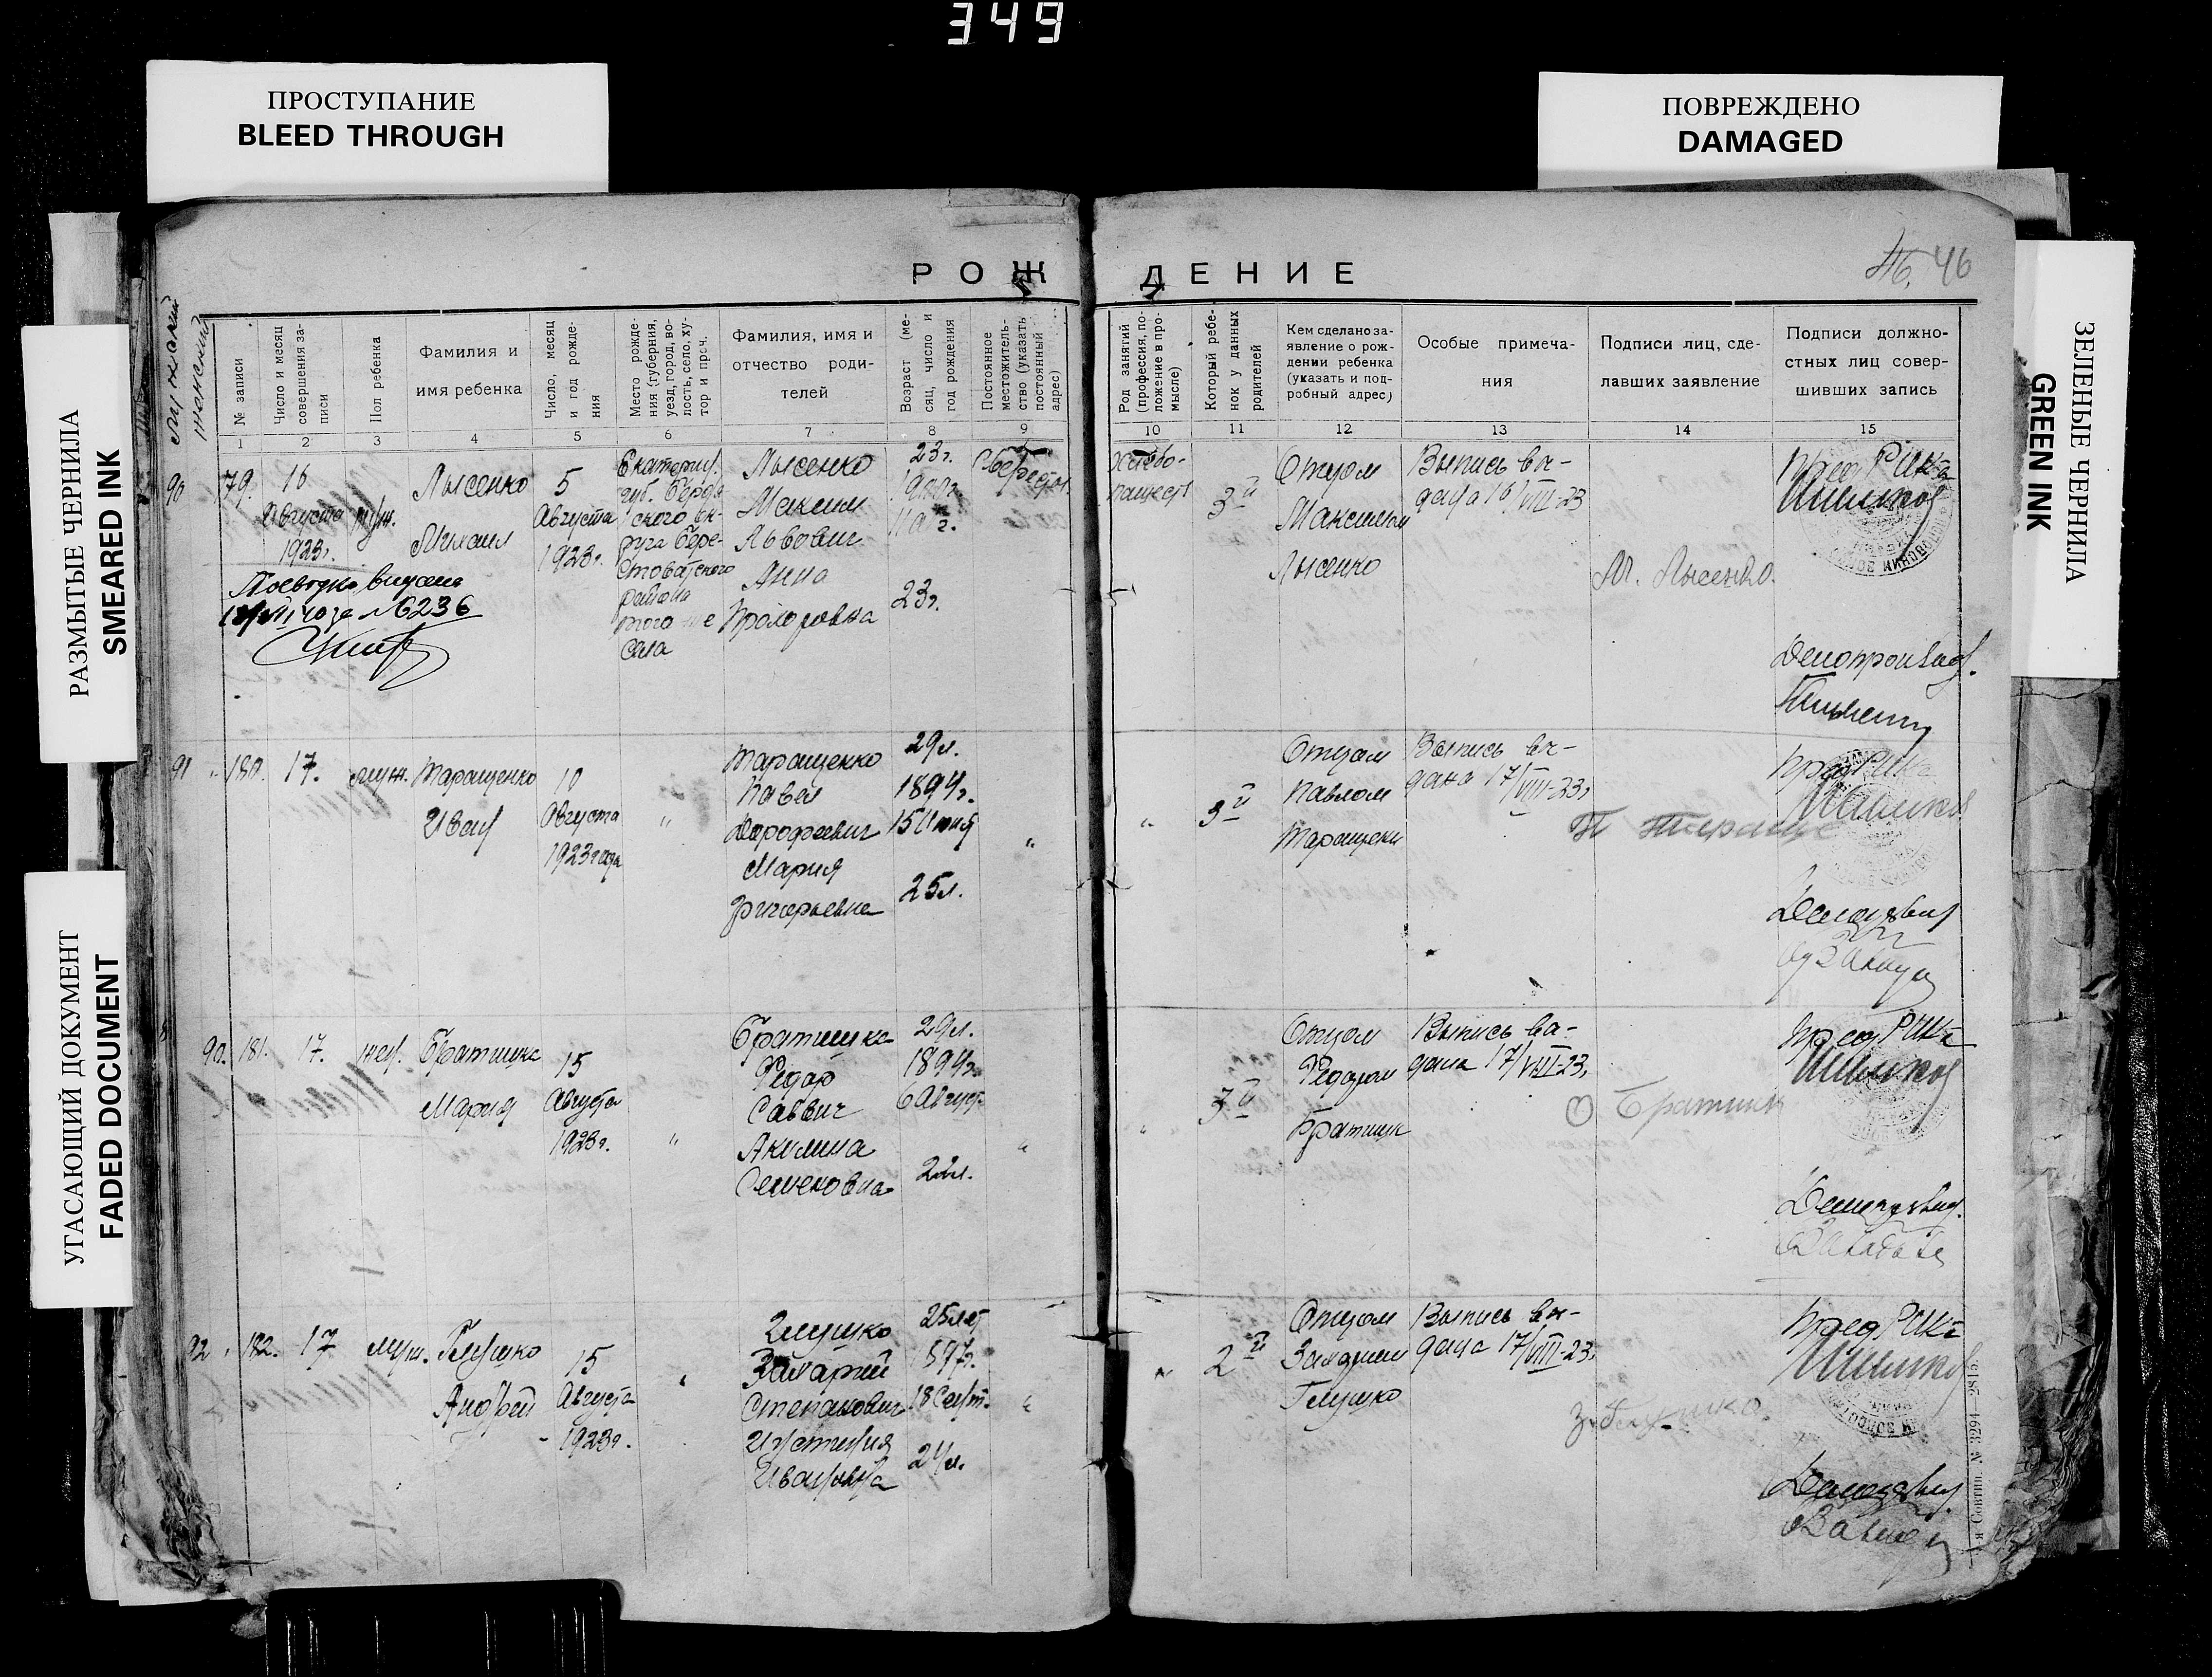 349
ПРОСТУПАНИЕ
BLEED THROUGH
ПОВРЕЖДЕНО
DAMAGED
РАЗМЫТЫЕ ЧЕРНИЛА
SMEARED INK
УГАСАЮЩИЙ ДОКУМЕНТ
FADED DOCUMENT
ЗЕЛЕНЫЕ ЧЕРНИЛА
GREEN INK
46. 46
РОЖДЕНИЕ
мужский
женский
№ записи
Число и месяц
совершения за-
писи
Пол ребенка
Фамилия и
имя ребенка
Число, месяц
и год рожде-
ния
Место рожде-
ния (губерния,
уезд, город, во-
лость, село, ху-
тор и проч.
Фамилия, имя и
отчество роди-
телей
Возраст (ме-
сяц, число и
год рождения
Постоянное
местожитель-
ство (указать
постоянный
адрес)
Род занятий
(профессия, по-
ложение в про-
мысле)
Который ребе-
нок у данных
родителей
Кем сделано за-
явление о рож-
дении ребенка
(указать и под-
робный адрес)
Особые примеча-
ния
Подписи лиц, сде-
лавших заявление
Подписи должно-
стных лиц совер-
шивших запись
1 2 3 4 5 6 7 8 9 10 11 12 13 14 15
90
179.
16
Августа
1923г.
муж.
Лысенко
Михаил
5
Августа
1923г.
Екатерин.
губ. Бердян-
ского ок-
руга Бере-
стоватского
района
того же
села
Лысенко
Максим
Львович
Анна
Прохоровна
23г.
1900г.
23г.
Хлебо-
пашест
3й
Отцом
Максимом
Лысенко
Выпись вы-
дана 16/VIII-23
М. Лысенко.
Пред РИКа
Шишков
№236
91
180.
17.
муж.
Таращенко
Иван
10
Августа
1923 года
"
Таращенко
Павел
Дорофеевич
Мария
Григорьевна
29л.
1894г.
15 Июня
25л.
"
"
3й
Отцом
Павлом
Таращенк
Выпись вы-
дана 17/VIII-23г
Пред РИКа
Шишков
90.
181.
17.
жен.
Братишка
Мария
15
Августа
1923г.
"
Братишка
Федор
Саввич
Акилина
Семеновна
29л.
1894г.
6 Август
22л.
"
"
3й
Отцом
Федором
Братишк
Выпись вы-
дана 17/VIII-23г
Братишк
Пред РИКа
Шишков
92
182.
17
муж.
Глушко
Андрей
15
Августа
1923г.
"
Глушко
Захарий
Степанович
Иустиния
Ивановна
25лет
1897г.
18 Сент.
24л.
"
"
2й
Отцом
Захарием
Глушко
Выпись вы-
дана 17/VIII-23г
З. Глушко.
Пред РИКа
Шишков